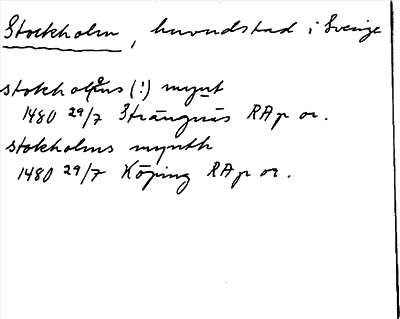 Stockholm, huvudstad i Sverige
stokholms (!) mynt
1480 29/7 Strängnäs RAp or.
stokholms mynth
1480 29/7 Köping RAp or.